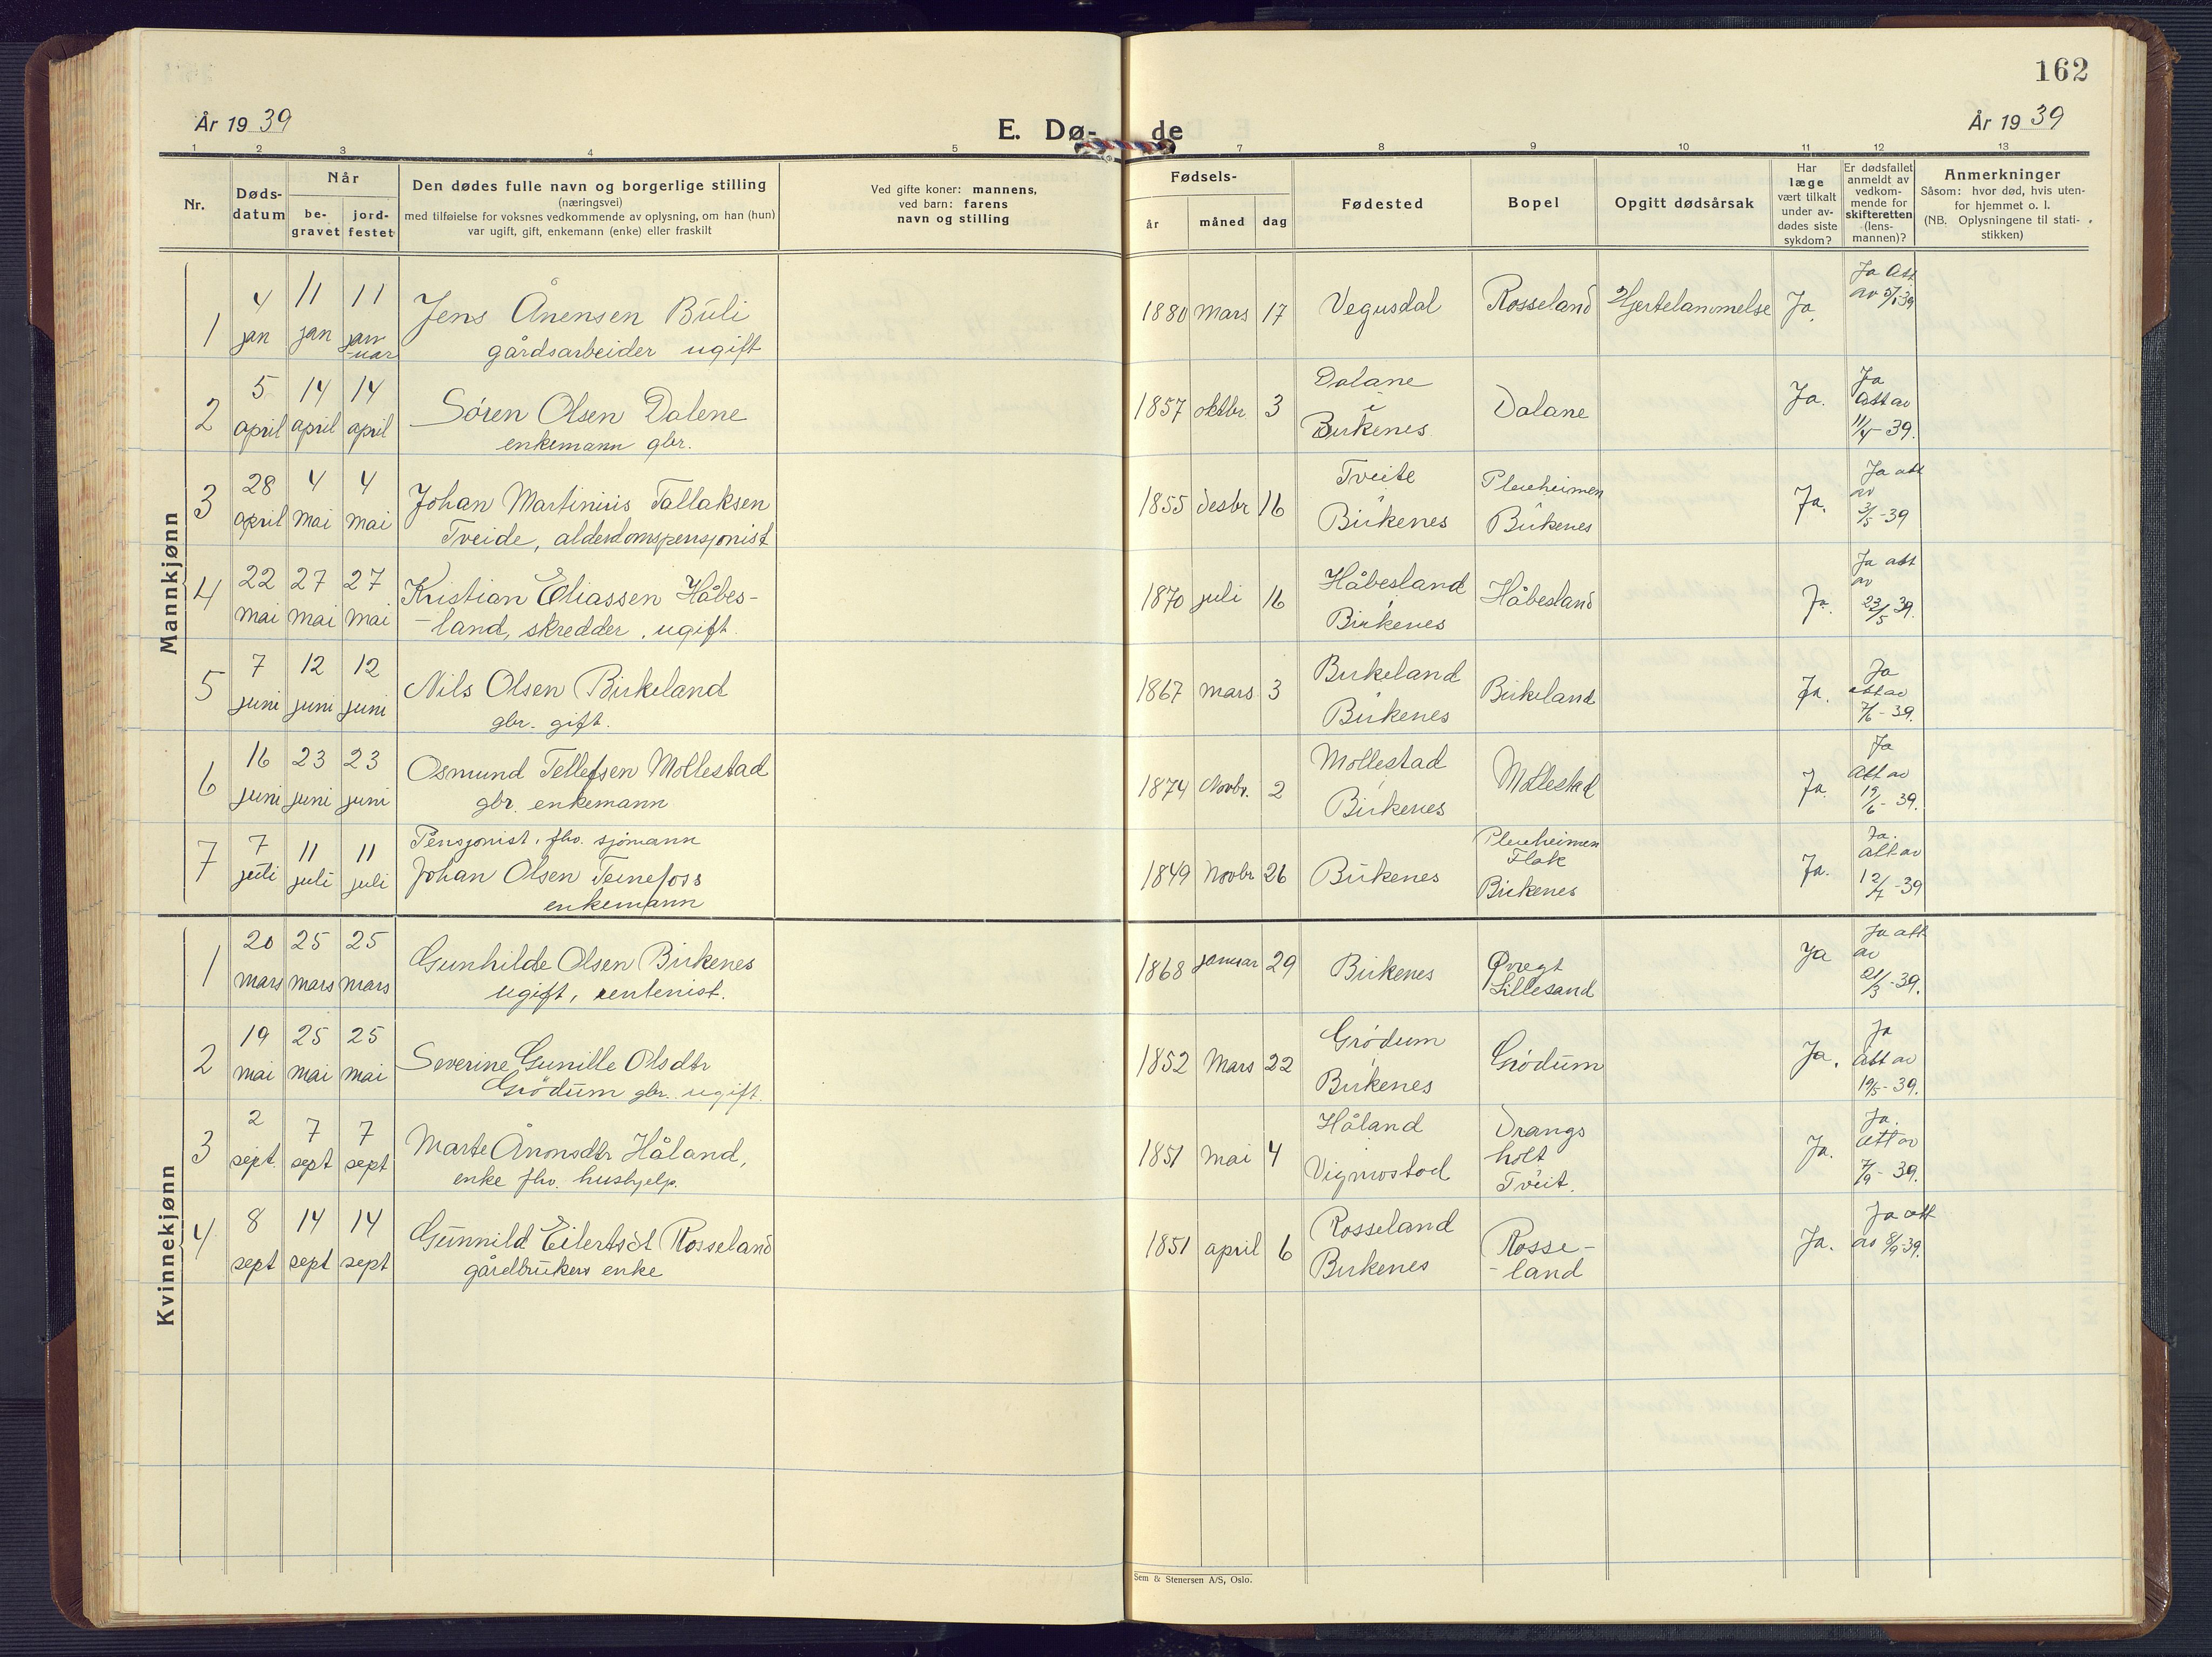 162
År 1939
E. Døde
År 1939
1 2 3 4 5 7 8 9 10 11 12 13
Nr.
Døds-datum
Når
be-gravet
jord-festet
Den dødes fulle navn og borgerlige stilling
(næringsvei)
med tilføielse for voksnes vedkommende av oplysning, om han (hun)
var ugift, gift, enkemann (enke) eller fraskilt
Ved gifte koner: mannens,
ved barn: farens
navn og stilling
Fødsels-
år
måned
dag
Fødested
Bopel
Opgitt dødsårsak
Har læge vært tilkalt under av-dødes siste sykdom?
Er dødsfallet anmeldt av vedkom-mende for skifteretten (lens-mannen)?
Anmerkninger
Såsom: hvor død, hvis uten-
for hjemmet o. l.
(NB. Oplysningene til stati-
stikken)
Mannkjønn
1 4 jan 11 jan 11 jan-uar Jens Ånensen Buli
gårdsarbeider ugift
1880 Mars 17 Vegusdal Rosseland Hjertelammelse Ja. Ja Att av 5/1 39
2 5 april 14 april 14 april Søren Olsen Dalene
enkemann gbr.
1857 oktbr 3 Dalane i Birkenes Dalane Ja. Ja Att av 11/4-39.
3 28 april 4 mai 4 mai Johan Martinius Tallaksen
Tveide, alderdomspensjonist
1855 desbr 16 Tveite Birkenes Pleieheimen Birkenes Ja. Ja att av 3/5-39
4 22 mai 27 mai 27 mai Kristian Eliassen Håbes-
-land, skredder, ugift.
1870 juli 16 Håbesland i Birkenes Håbesland Ja. Ja att av 23/5 39.
5 7 juni 12 juni 12 juni Nils Olsen Birkeland
gbr. gift.
1867 mars 3 Birkeland Birkenes Birkeland Ja. Ja att av 7/6-39.
6 16 juni 23 juni 23 juni Osmund Tellefsen Mollestad
gbr. enkemann
1874 Novbr. 2 Mollestad Birkenes Mollestad Ja. Ja Att av 19/6-39.
7 7 juli 11 juli 11 juli Pensjonist, fhv. sjömann
Johan Olsen Teinefoss
enkemann
1849 Novbr 26 Birkenes Pleieheimen Flak Birkenes Ja. Ja. att av 12/7-39
Kvinnekjønn
1 20 mars 25 mars 25 mars Gunhilde Olsen Birkenes
ugift, rentenist.
1868 januar 29 Birkenes Øvregt Lillesand Ja Ja att av 21/3-39.
2 19 mai 25 mai 25 mai Severine Gunille Olsdtr
Grödum gbr. ugift.
1852 Mars 22 Grödum i Birkenes Grödum Ja. Ja Att av 19/5-39.
3 2 sept. 7 sept 7 sept Marte Ånonsdtr Håland,
enke fhv. hushjelp.
1851 mai 4 Håland Vigmostad Drangsholt Tveit. Ja. Ja. att av 7/9-39.
4 8 sept 14 sept 14 sept Gunnild Eilertsdt Rosseland
gårdbrukers enke
1851 april 6 Rosseland Birkenes Rosse-
-land Ja. Ja att av 8/9-39.
Sem & Stenersen A/S, Oslo.